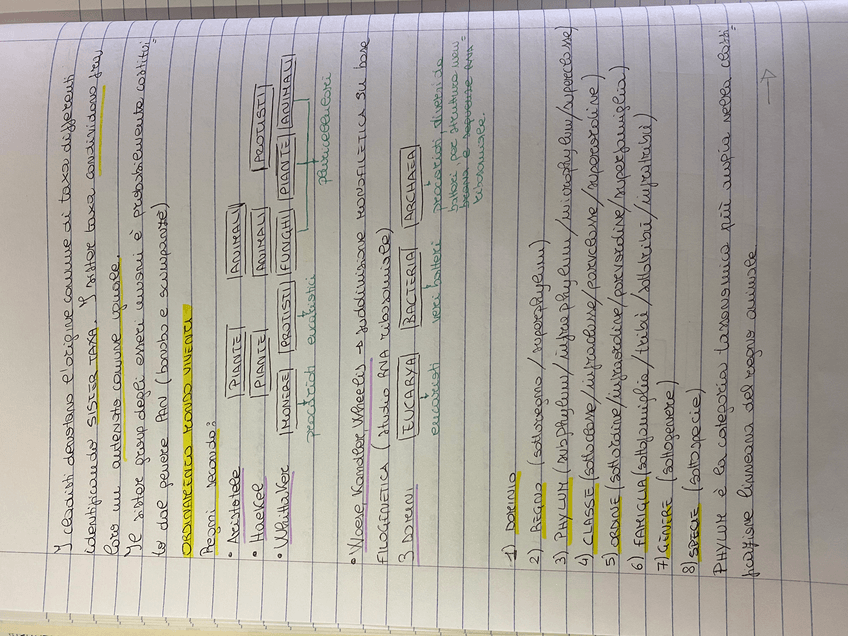 I cladisti denotano l'origine comune di taxa differenti
identificando SISTER TAXA. I sister taxa condividono fra
loro un antenato comune uguale.
Il sister group degli esseri umani è probabilmente costitui=
to dal genere PAN (bonobo e scimpanzé)
ORDINAMENTO MONDO VIVENTE
Regni secondo:
• Aristotele PIANTE ANIMALI
• Haekel PIANTE ANIMALI PROTISTI
• Whittaker MONERE PROTISTI FUNGHI PIANTE ANIMALI
procarioti eucarioti pluricellulari
• Woese, Kandler, Wheelis → suddivisione MONOFILETICA su base
FILOGENETICA (studio RNA ribosomiale)
3 DOMINI EUCARYA BACTERIA ARCHAEA
eucarioti veri batteri procarioti, diversi da
batteri per struttura mem=
brana e sequenze RNA
ribosomiale.
1) DOMINIO
2) REGNO (sottoregno/superphylum)
3) PHYLUM (subphylum/infraphylum/microphylum/superclasse)
4) CLASSE (sottoclasse/infraclasse/parvclasse/superordine)
5) ORDINE (sottordine/infraordine/parvordine/superfamiglia)
6) FAMIGLIA (sottofamiglia/tribù/sottotribù/infratribù)
7) GENERE (sottogenere)
8) SPECIE (sottospecie)
PHYLUM è la categoria tassonomica più ampia nella classi=
ficazione linneana del regno animale.
→